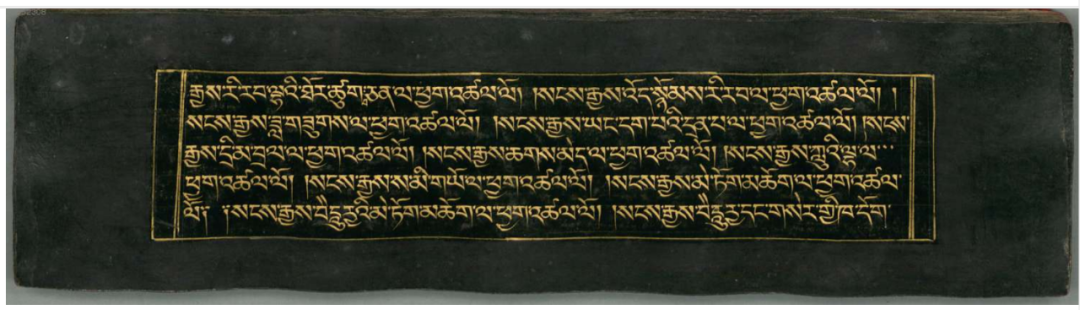 རྒྱས་རི་རབ་ལྷའི་ཐོར་ཚུགས་ཅན་ལ་ཕྱག་འཚལ་ལོ། །སངས་རྒྱས་འོད་སྙོམས་རི་རབ་ལ་ཕྱག་འཚལ་ལོ། །
སངས་རྒྱས་ཟླ་གཟུགས་ལ་ཕྱག་འཚལ་ལོ། །སངས་རྒྱས་ཡང་དག་པའི་དཔལ་ཕྱག་འཚལ་ལོ། །སངས་
རྒྱས་དྲི་མ་བྲལ་ལ་ཕྱག་འཚལ་ལོ། །སངས་རྒྱས་ཆགས་མེད་ལ་ཕྱག་འཚལ་ལོ། །སངས་རྒྱས་ཀླུའི་ལྷ་ལ་
ཕྱག་འཚལ་ལོ། །སངས་རྒྱས་ས་མི་གཡོ་ལ་ཕྱག་འཚལ་ལོ། །སངས་རྒྱས་མེ་ཏོག་མཆོག་ལ་ཕྱག་འཚལ་
ལོ། །སངས་རྒྱས་བཻ་ཌཱུརྱའི་མེ་ཏོག་མཆོག་ལ་ཕྱག་འཚལ་ལོ། །སངས་རྒྱས་བཻ་ཌཱུརྱ་དང་གསེར་གྱི་ཁ་དོག་